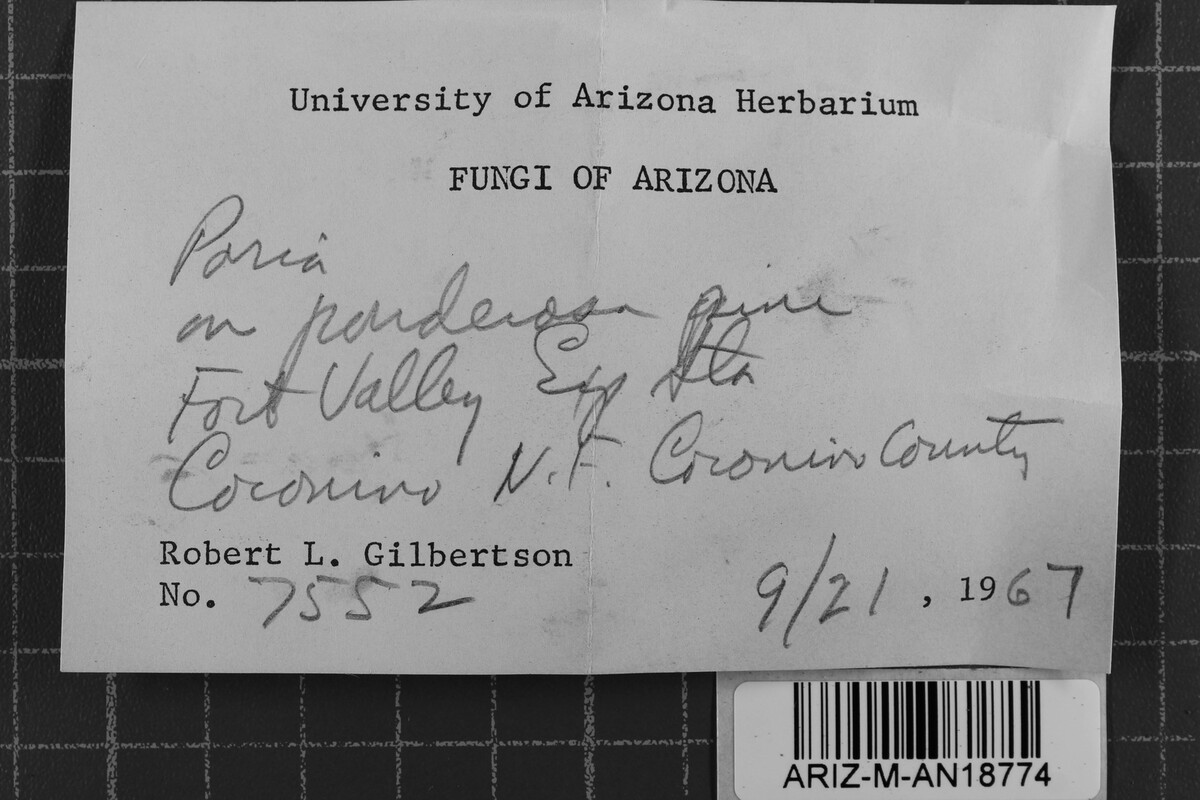 University of Arizona Herbarium
FUNGI OF ARIZONA
Poria
on ponderosa pine
Fort Valley Exp Sta
Coconino N.F. Coconino County
Robert L. Gilbertson
No. 7552
9/21, 1967
ARIZ-M-AN18774